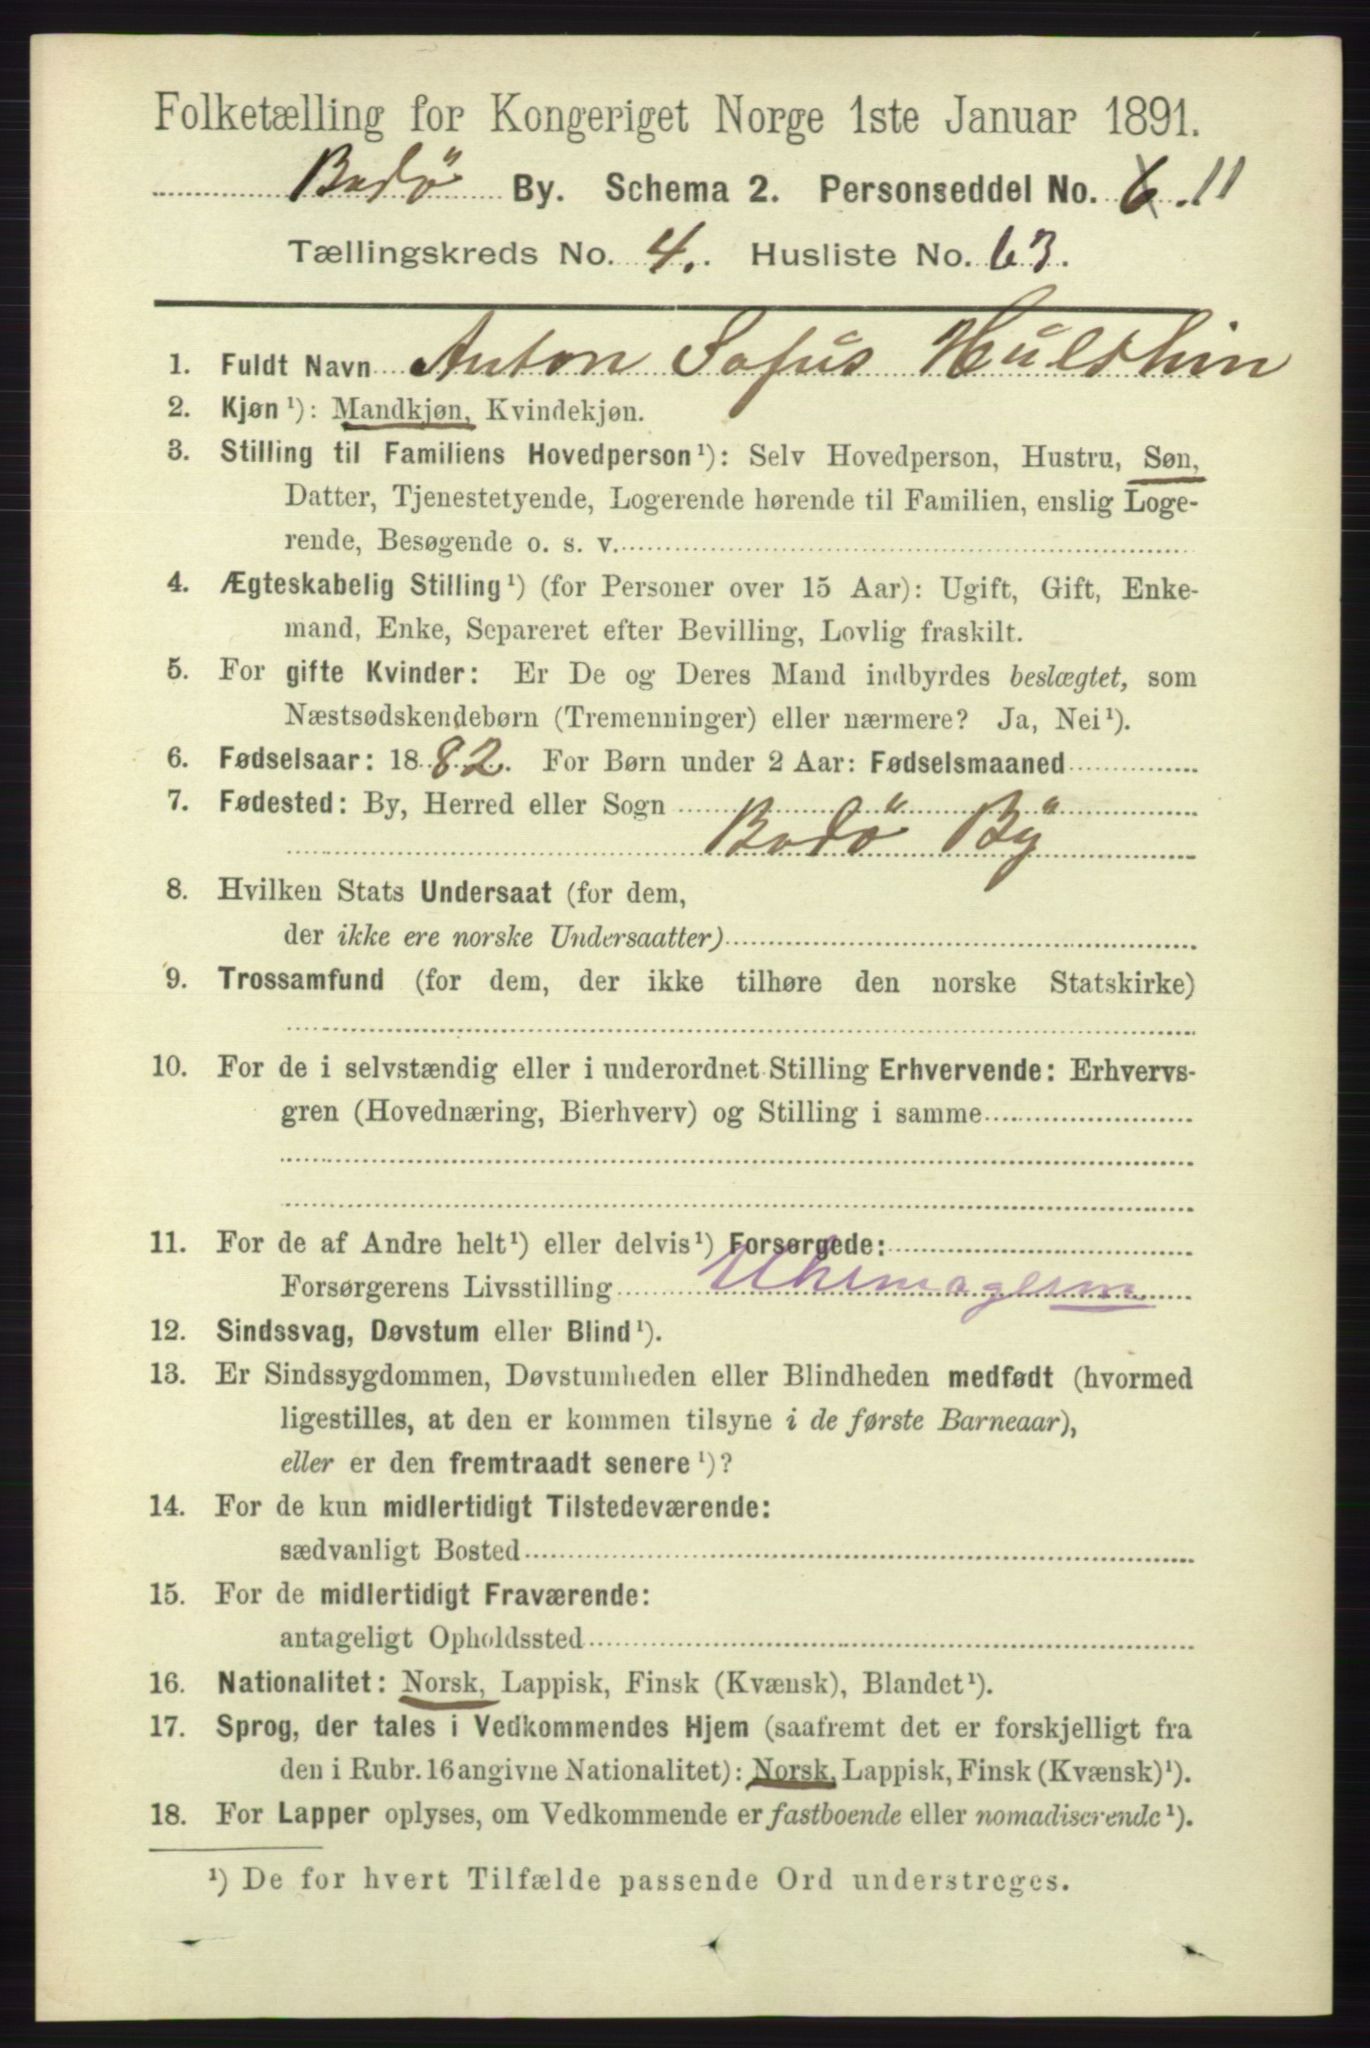 Folketælling for Kongeriget Norge 1ste Januar 1891.
Bodö By. Schema 2. Personseddel No. 6. 11
Tællingskreds No. 4. Husliste No. 63.
1. Fuldt Navn Anton Sofus Hulthin
2. Kjøn¹): Mandkjøn, Kvindekjøn.
3. Stilling til Familiens Hovedperson¹): Selv Hovedperson, Hustru, Søn,
Datter, Tjenestetyende, Logerende hørende til Familien, enslig Loge-
rende, Besøgende o. s. v.
4. Ægteskabelig Stilling¹) (for Personer over 15 Aar): Ugift, Gift, Enke-
mand, Enke, Separeret efter Bevilling, Lovlig fraskilt.
5. For gifte Kvinder: Er De og Deres Mand indbyrdes beslægtet, som
Næstsødskendebørn (Tremenninger) eller nærmere? Ja, Nei¹).
6. Fødselsaar: 1882. For Børn under 2 Aar: Fødselsmaaned
7. Fødested: By, Herred eller Sogn
Bodö By
8. Hvilken Stats Undersaat (for dem,
der ikke ere norske Undersaatter)
9. Trossamfund (for dem, der ikke tilhøre den norske Statskirke)
10. For de i selvstændig eller i underordnet Stilling Erhvervende: Erhvervs-
gren (Hovednæring, Bierhverv) og Stilling i samme
11. For de af Andre helt¹) eller delvis¹) Forsørgede:
Forsørgerens Livsstilling Uhrmagerm
12. Sindssvag, Døvstum eller Blind¹).
13. Er Sindssygdommen, Døvstumheden eller Blindheden medfødt (hvormed
ligestilles, at den er kommen tilsyne i de første Barneaar),
eller er den fremtraadt senere¹)?
14. For de kun midlertidigt Tilstedeværende:
sædvanligt Bosted
15. For de midlertidigt Fraværende:
antageligt Opholdssted
16. Nationalitet: Norsk, Lappisk, Finsk (Kvænsk), Blandet¹).
17. Sprog, der tales i Vedkommendes Hjem (saafremt det er forskjelligt fra
den i Rubr. 16 angivne Nationalitet): Norsk, Lappisk, Finsk (Kvænsk)¹).
18. For Lapper oplyses, om Vedkommende er fastboende eller nomadiserende¹).
¹) De for hvert Tilfælde passende Ord understreges.